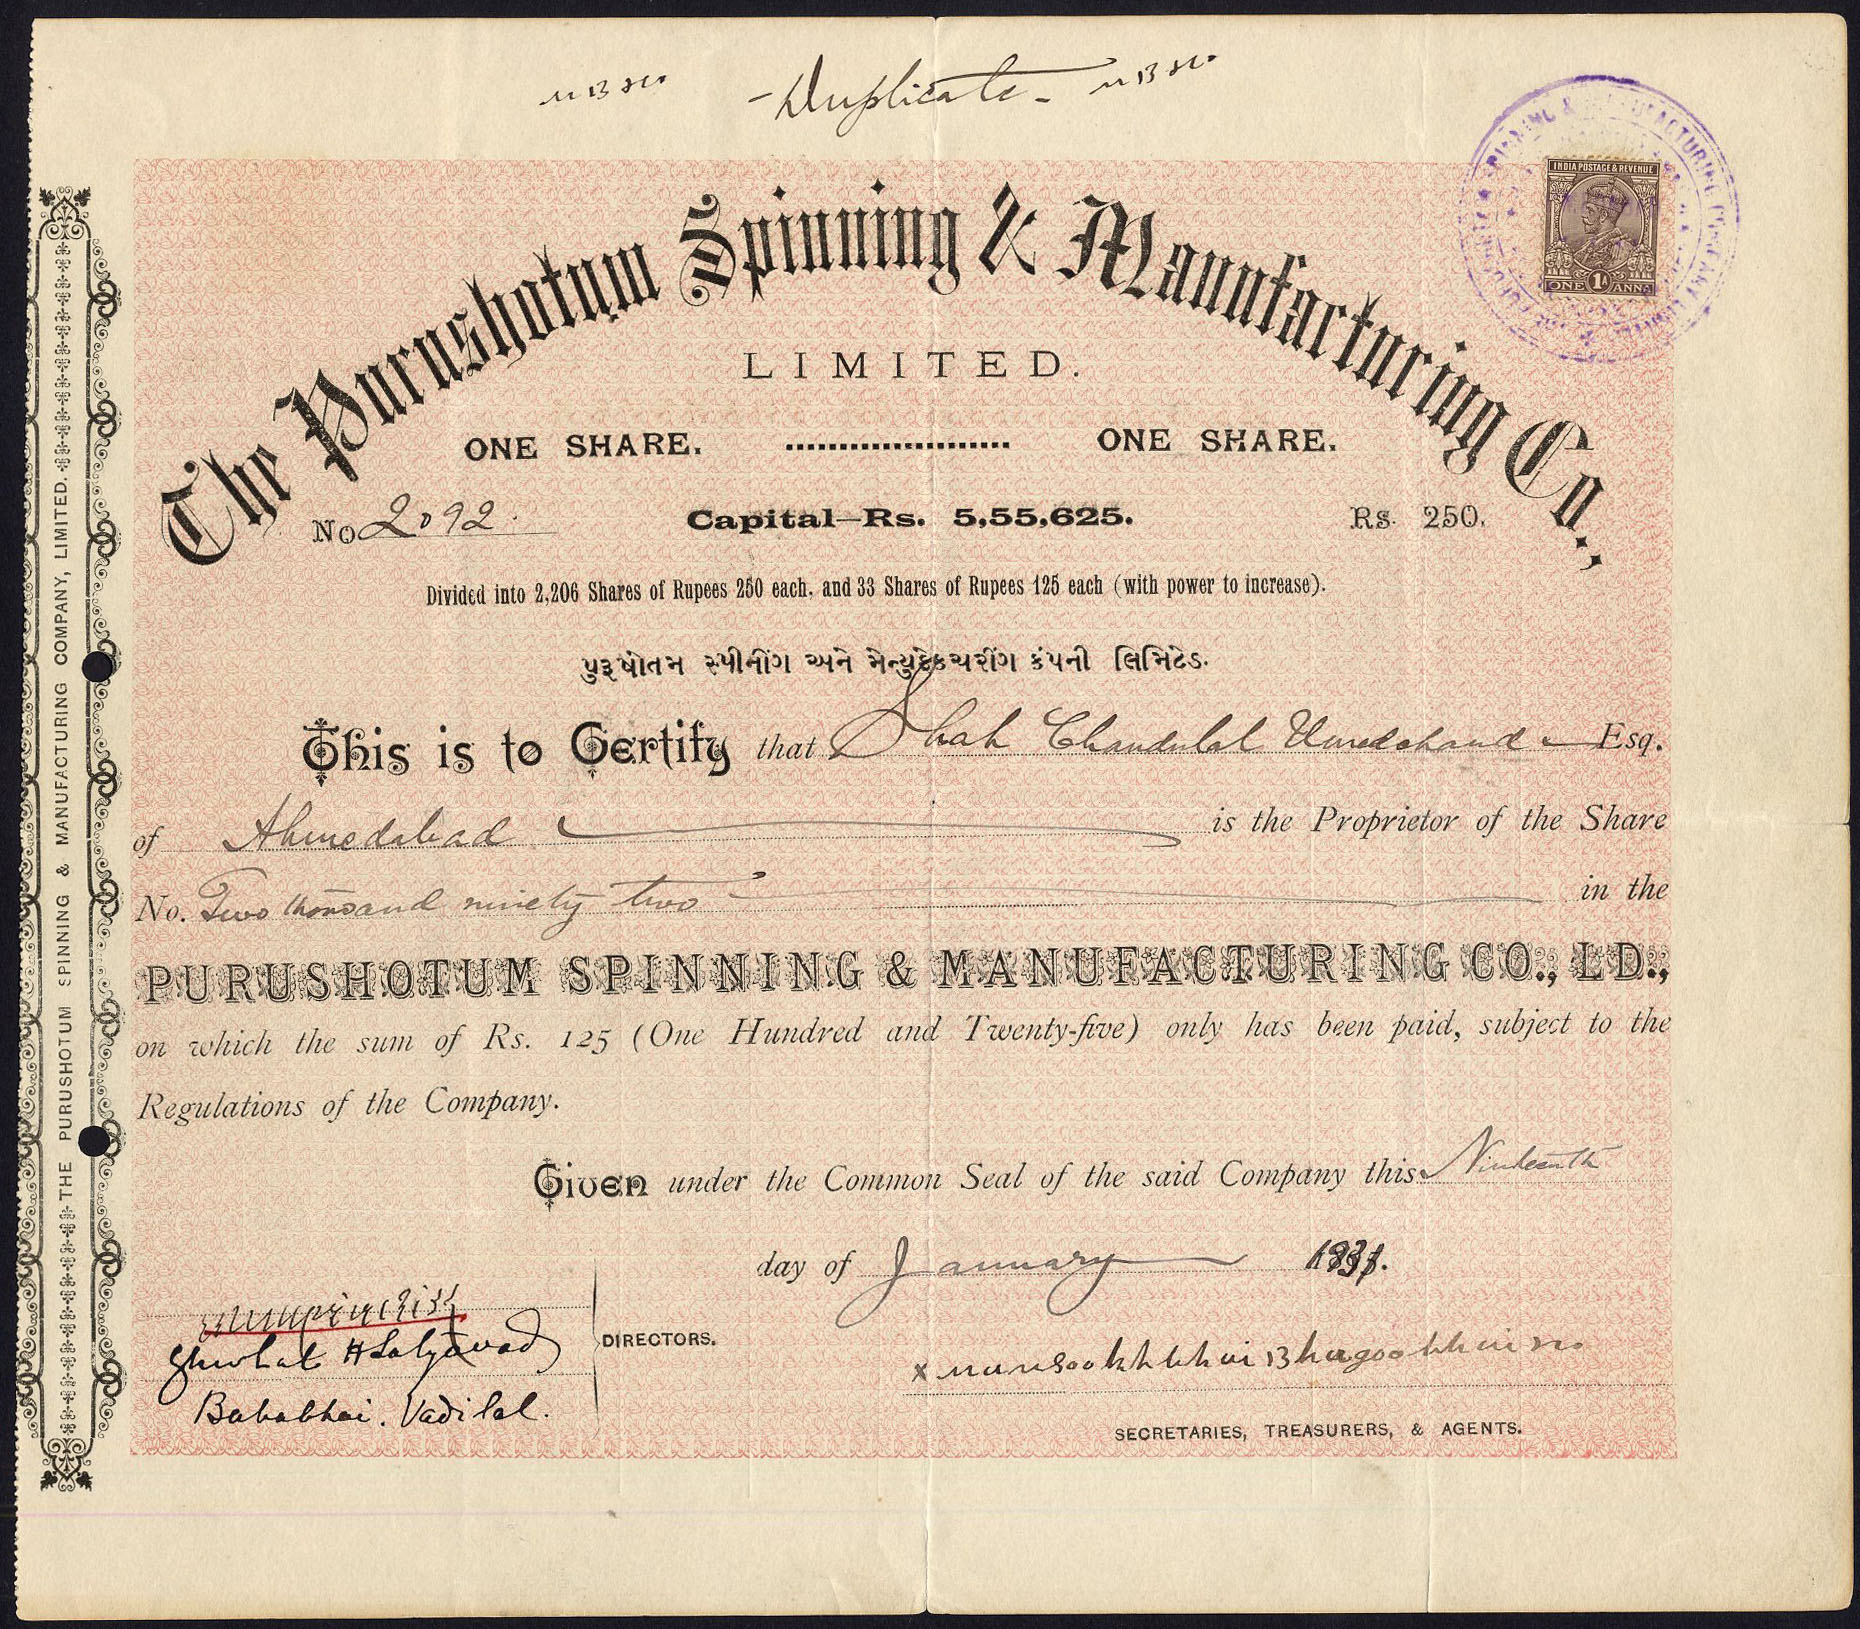 - Duplicate -
The Purushotum Spinning & Manufacturing Co.,
LIMITED.
INDIA POSTAGE & REVENUE
1A
ONE ANNA
SPINNING & MANUFACTURING COMPANY LIMITED
ONE SHARE. ONE SHARE.
No 2092. Capital—Rs. 5,55,625. Rs. 250.
Divided into 2,206 Shares of Rupees 250 each, and 33 Shares of Rupees 125 each (with power to increase).
પુરૂષોતમ સ્પીનીંગ અને મેન્યુફેકચરીંગ કંપની લિમિટેડ.
This is to Certify that Shah Chandulal Umedchand Esq.
of Ahmedabad is the Proprietor of the Share
No. Two thousand ninety two in the
PURUSHOTUM SPINNING & MANUFACTURING CO., LD.,
on which the sum of Rs. 125 (One Hundred and Twenty-five) only has been paid, subject to the
Regulations of the Company.
Given under the Common Seal of the said Company this Ninteenth
day of January 1931.
DIRECTORS.
Bababhai. Vadilal.
x mansookhbhai Bhagoobhai
SECRETARIES, TREASURERS, & AGENTS.
THE PURUSHOTUM SPINNING & MANUFACTURING COMPANY, LIMITED.